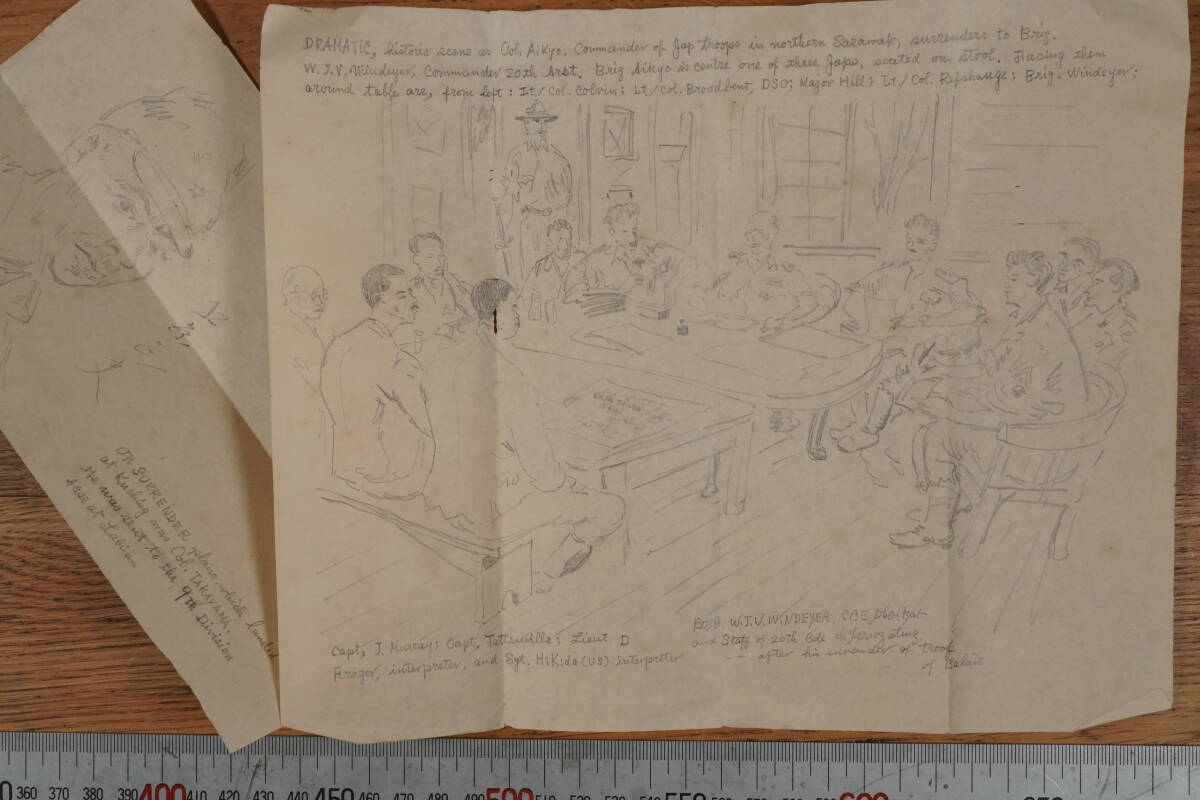 DRAMATIC, historic scene as Col. Aikyo. Commander of Jap troops in northern Sarawak, surrenders to Brig.
W.J.V. Windeyer, Commander 20th Arst. Brig Aikyo is centre one of three Japs. seated on stool. Facing them
around table are, from left: Lt/Col. Colvin; Lt/Col. Broadbent, DSO; Major Hill; Lt/Col. Refshauge; Brig. Windeyer;
Capt, J. Murray; Capt, Tattsuillo; Lieut. D
Frazor, interpreter, and Sgt. Hikida (US) interpreter
W.J.V. WINDEYER, CBE,
and Staff of 20th Bde
after his surender of Troop
of
On SURRENDER plane which landed
at Kuching was Col. TAKAYAMA.
He was sent to the 9th Division
base at Labuan
360 370 380 390 400 410 420 430 440 450 460 470 480 490 500 510 520 530 540 550 600 650